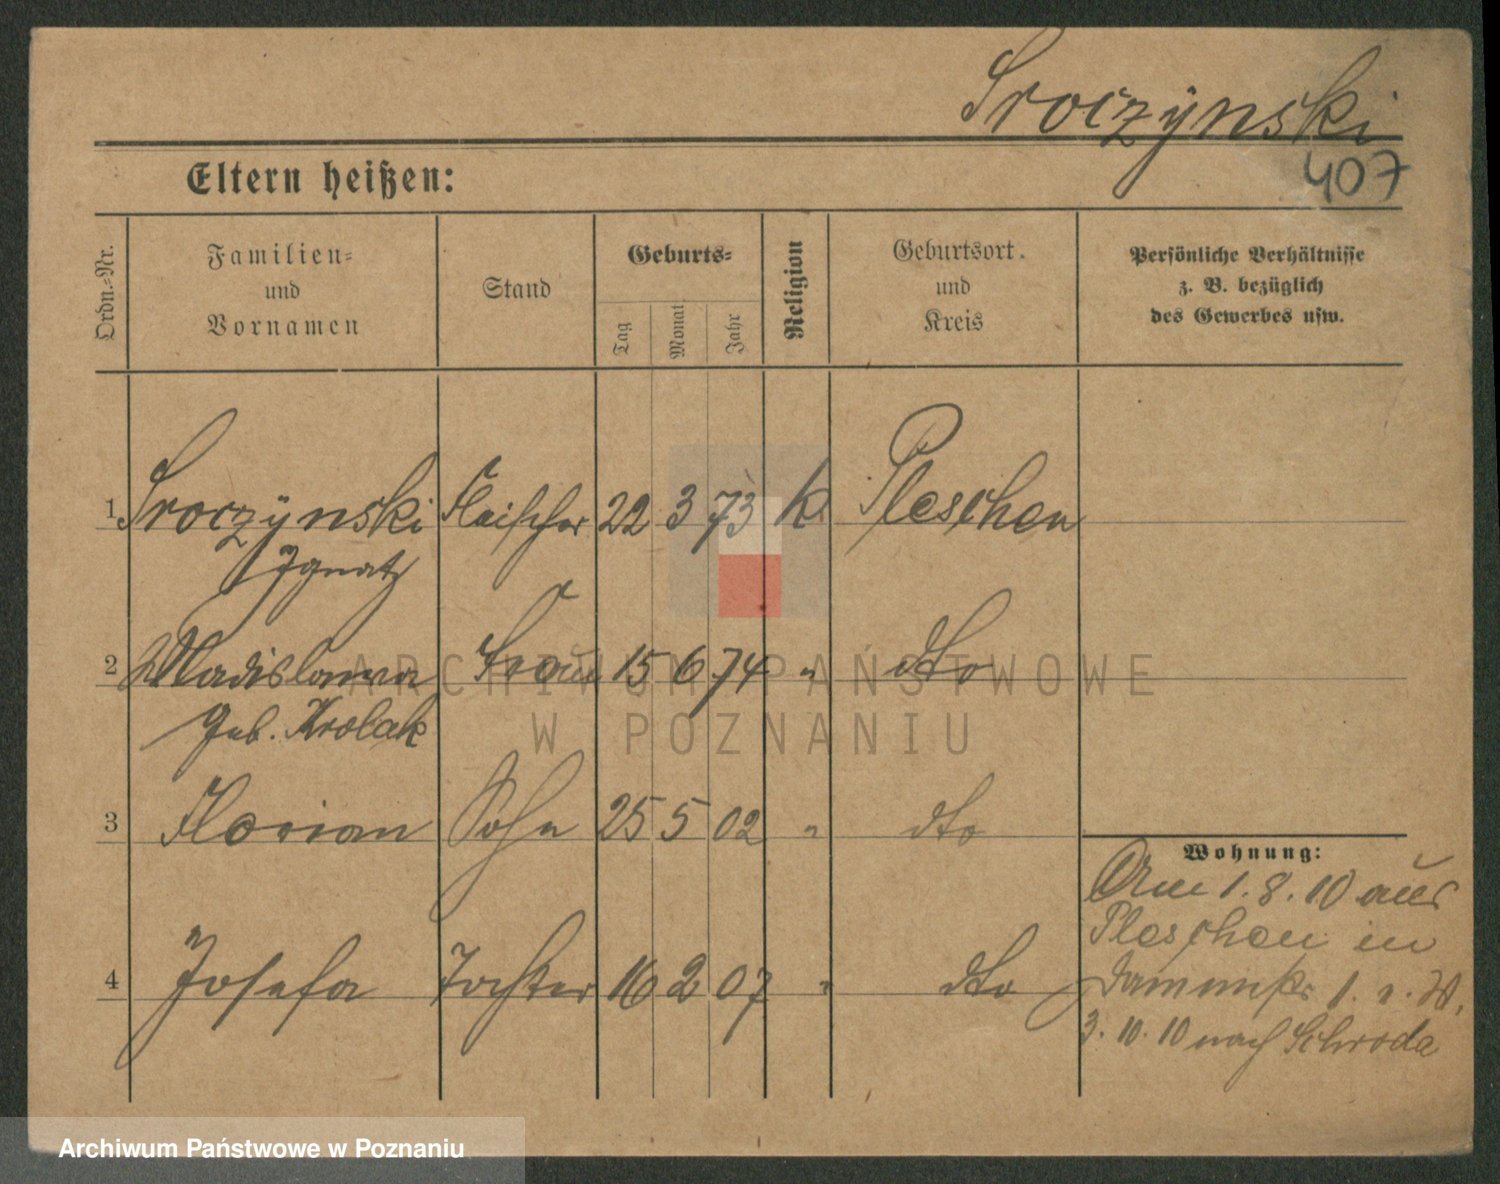 Sroczÿnski
407
Eltern heißen:
Ordn.-Nr.
Familien-
und
Vornamen
Stand
Geburts-
Tag
Monat
Jahr
Religion
Geburtsort
und
Kreis
Persönliche Verhältnisse
z. B. bezüglich
des Gewerbes usw.
1 Sroczÿnski Fleischer 22 3 73 k. Pleschen
Ignatz
2 Wladislawa Frau 15 6 74 " dto
geb. Krolak
3 Florian Sohn 25 5 02 " dto
4 Josefa Tochter 16 2 07 " dto
Wohnung:
Am 1.8.10 aus
Pleschen in
1.
3.10.10 nach Schroda
ARCHIWUM PAŃSTWOWE
W POZNANIU
Archiwum Państwowe w Poznaniu